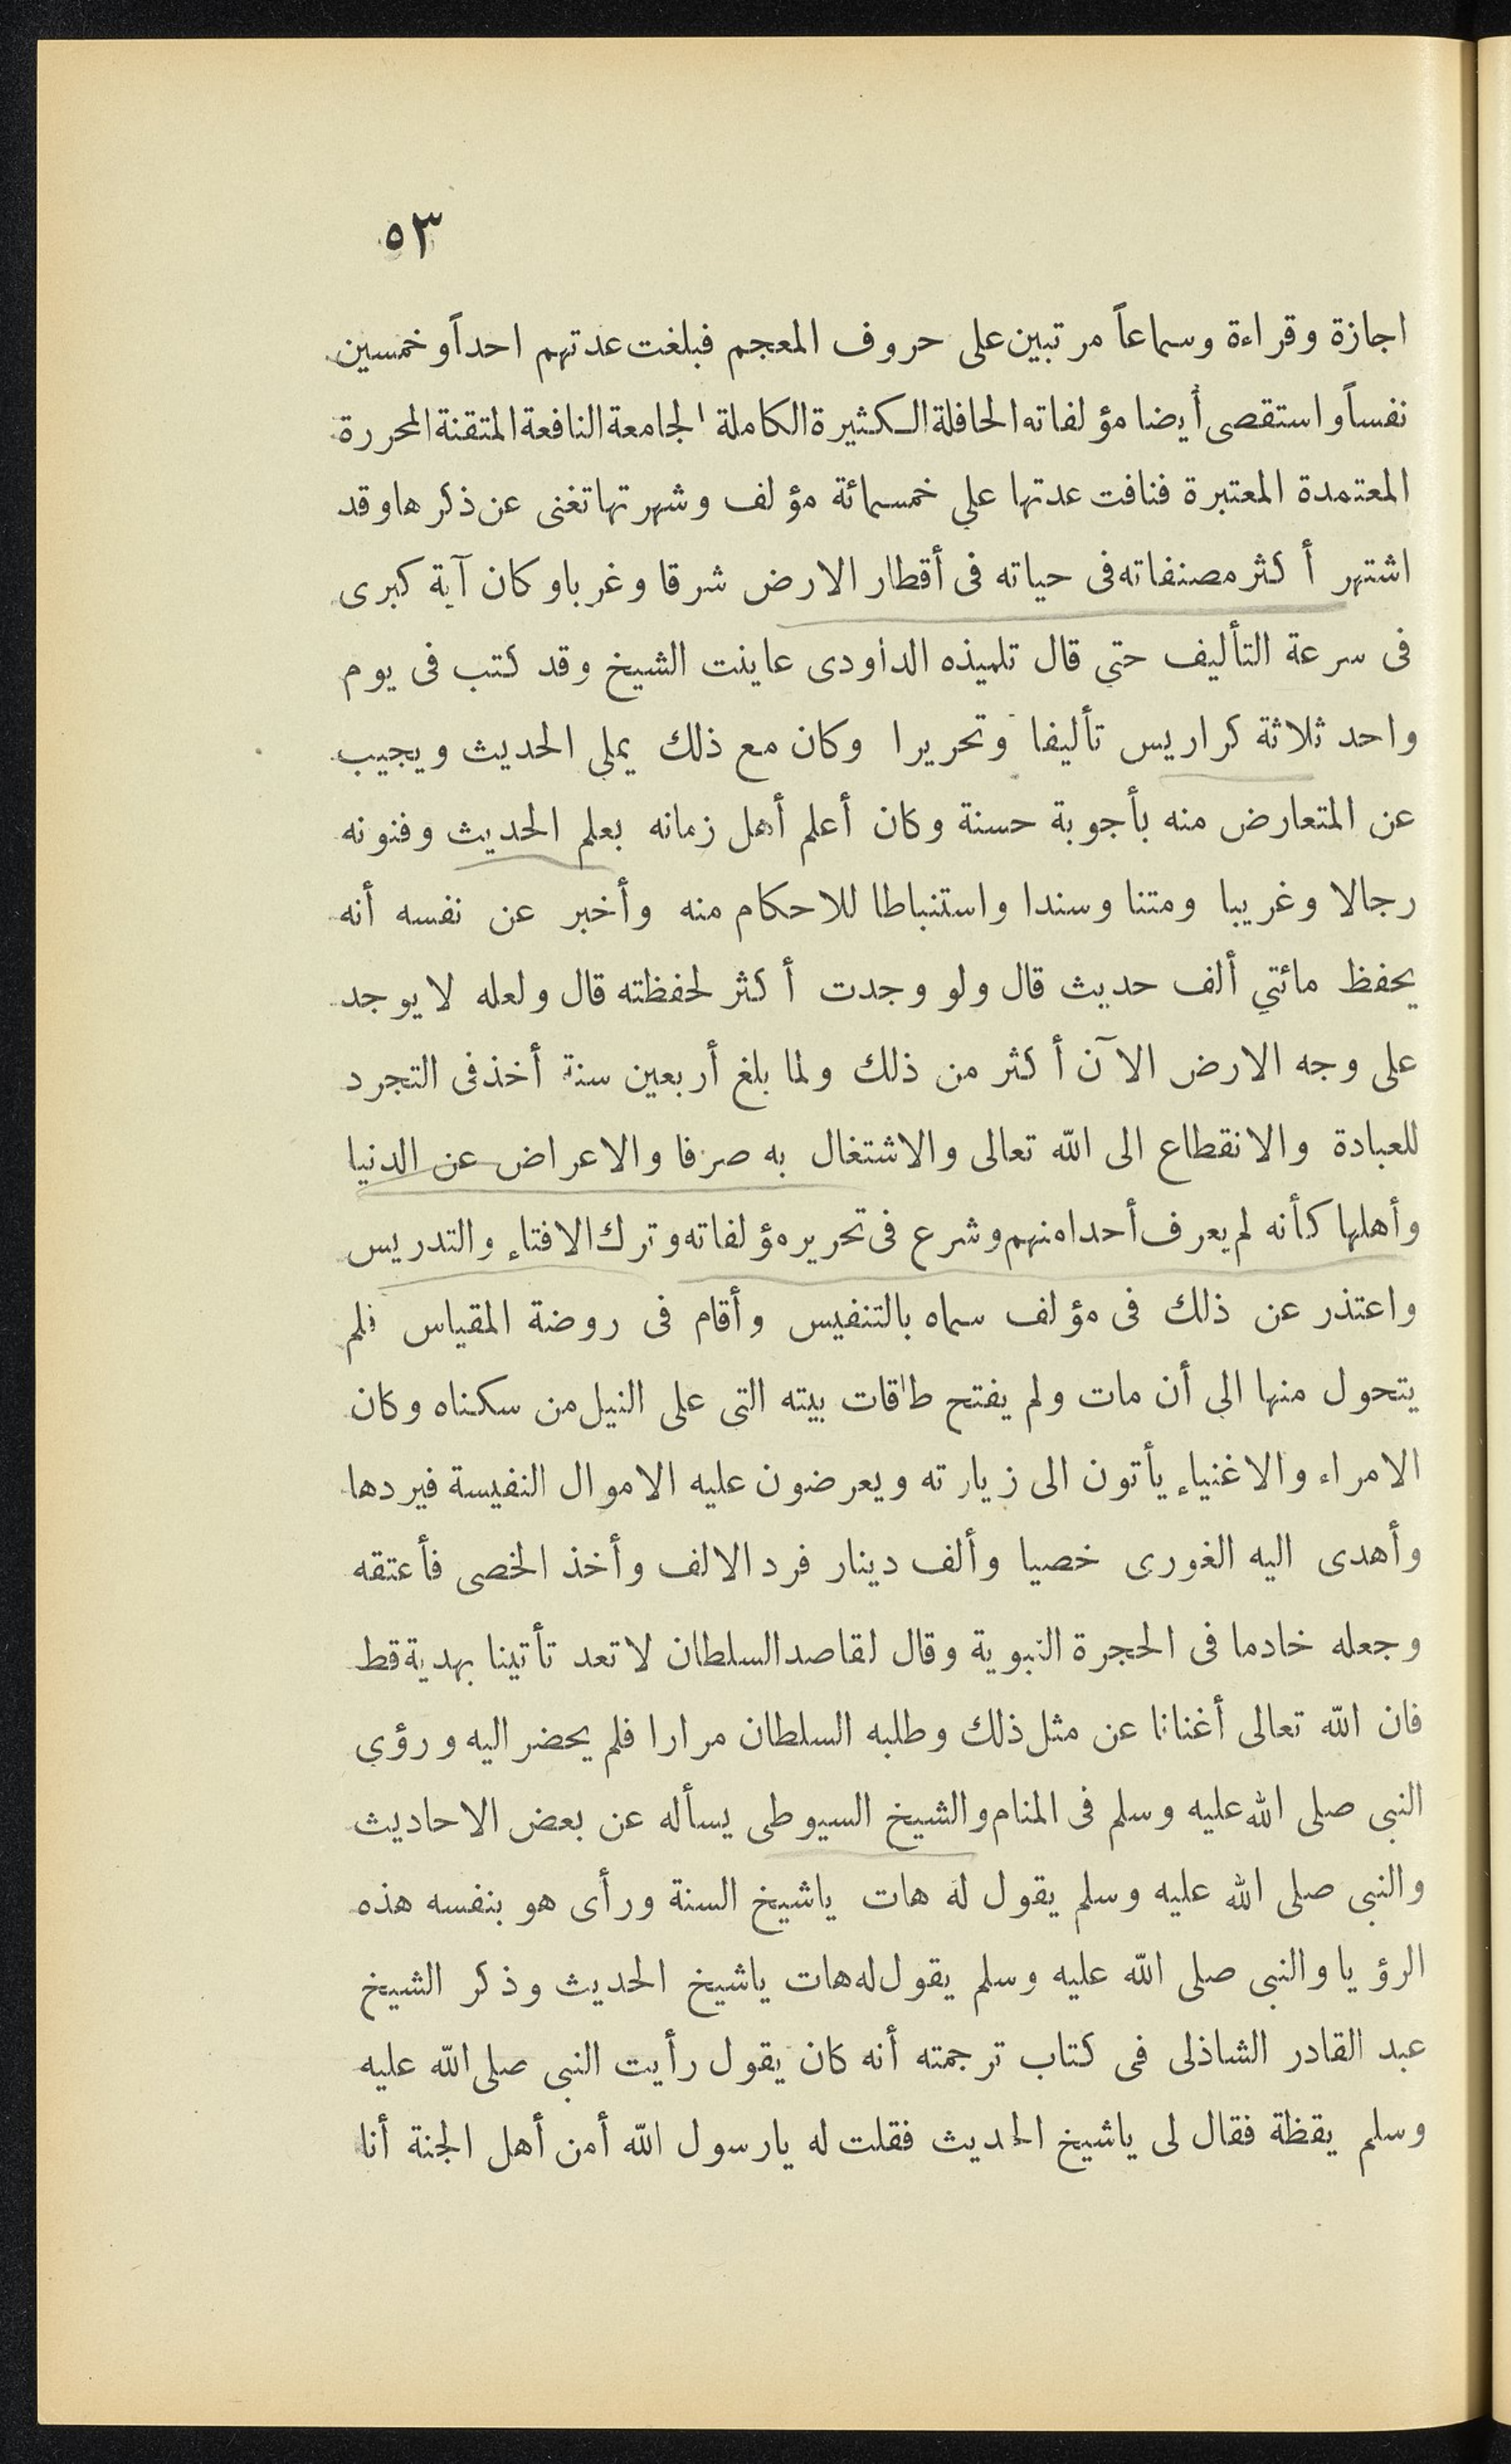 ٥٣
اجازة وقراءة وسماعاً مرتبين على حروف المعجم فبلغت عدتهم احداً وخمسين
نفساً واستقصى أيضا مؤلفاته الحافلة الكثيرة الكاملة الجامعة النافعة المتقنة المحررة
المعتمدة المعتبرة فنافت عدتها علي خمسمائة مؤلف وشهرتها تغنى عن ذكرها وقد
اشتهر أكثر مصنفاته فى حياته فى أقطار الارض شرقا وغربا وكان آية كبرى
فى سرعة التأليف حتي قال تلميذه الداودى عاينت الشيخ وقد كتب فى يوم
واحد ثلاثة كراريس تأليفا وتحريرا وكان مع ذلك يملي الحديث ويجيب
عن المتعارض منه بأجوبة حسنة وكان أعلم أهل زمانه بعلم الحديث وفنونه
رجالا وغريبا ومتنا وسندا واستنباطا للاحكام منه وأخبر عن نفسه أنه
يحفظ مائتي ألف حديث قال ولو وجدت أكثر لحفظته قال ولعله لا يوجد
على وجه الارض الآن أكثر من ذلك ولما بلغ أربعين سنة أخذ فى التجرد
للعبادة والانقطاع الى الله تعالى والاشتغال به صرفا والاعراض عن الدنيا
وأهلها كأنه لم يعرف أحدا منهم وشرع فى تحرير مؤلفاته وترك الافتاء والتدريس
واعتذر عن ذلك فى مؤلف سماه بالتنفيس وأقام فى روضة المقياس فلم
يتحول منها الي أن مات ولم يفتح طاقات بيته التى على النيل من سكناه وكان
الامراء والاغنياء يأتون الى زيارته ويعرضون عليه الاموال النفيسة فيردها
وأهدى اليه الغورى خصيا وألف دينار فرد الالف وأخذ الخصى فأعتقه
وجعله خادما فى الحجرة النبوية وقال لقاصد السلطان لا تعد تأتينا بهدية قط
فان الله تعالى أغنانا عن مثل ذلك وطلبه السلطان مرارا فلم يحضر اليه ورؤي
النبى صلى الله عليه وسلم فى المنام والشيخ السيوطى يسأله عن بعض الاحاديث
والنبى صلى الله عليه وسلم يقول له هات ياشيخ السنة ورأى هو بنفسه هذه
الرؤيا والنبى صلى الله عليه وسلم يقول له هات ياشيخ الحديث وذكر الشيخ
عبد القادر الشاذلى فى كتاب ترجمته أنه كان يقول رأيت النبى صلى الله عليه
وسلم يقظة فقال لى ياشيخ الحديث فقلت له يارسول الله أمن أهل الجنة أنا